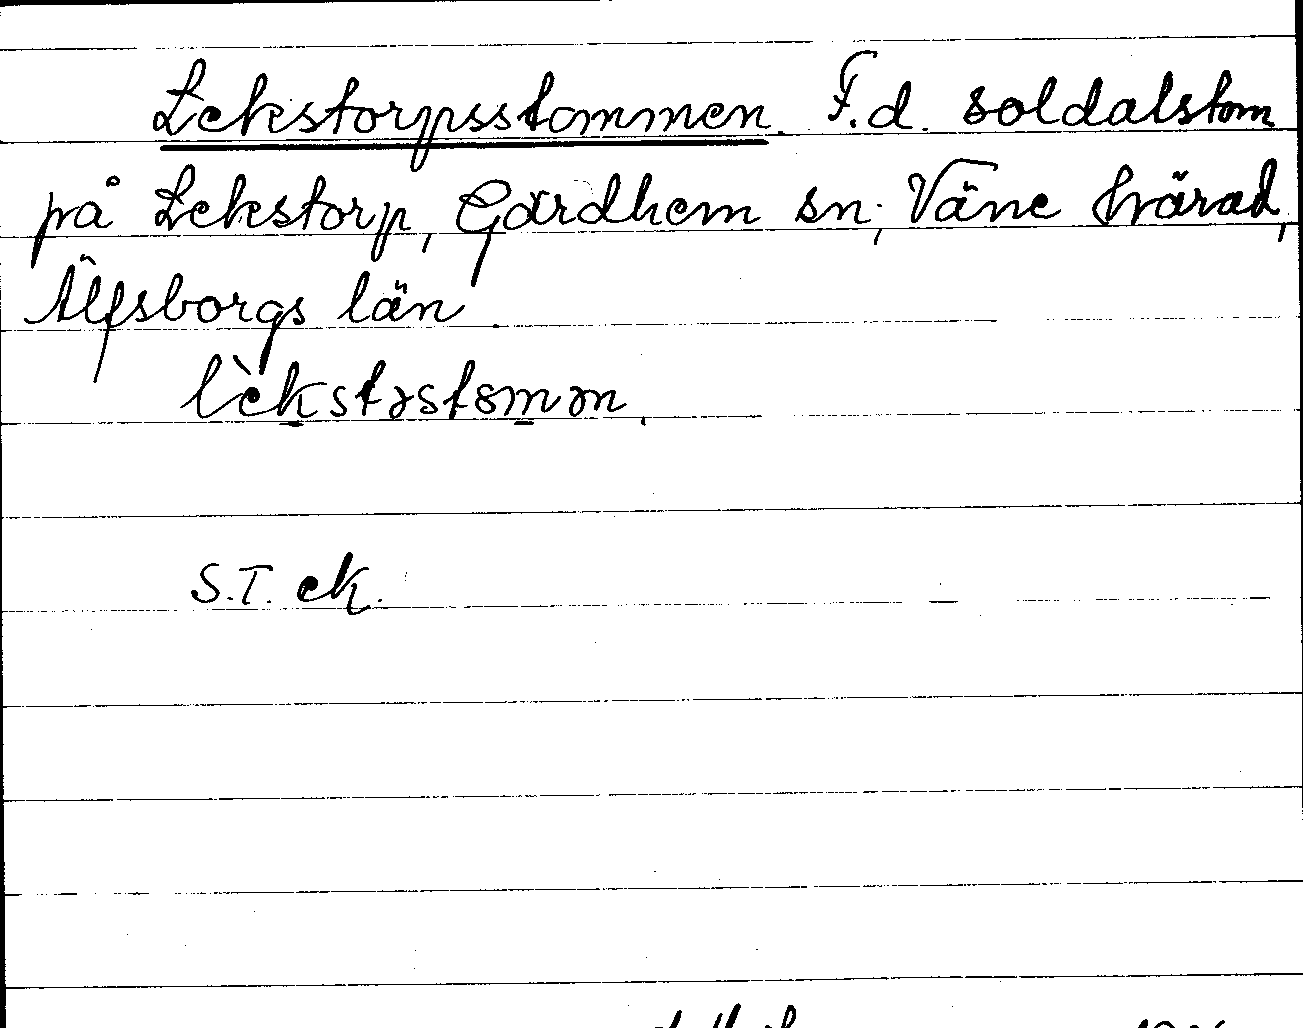 Lekstorpsstommen. F.d. soldatstom
på Lekstorp, Gärdhem sn; Väne härad,
Älfsborgs län.
lèkstəstɷmən.
S.T. ek.